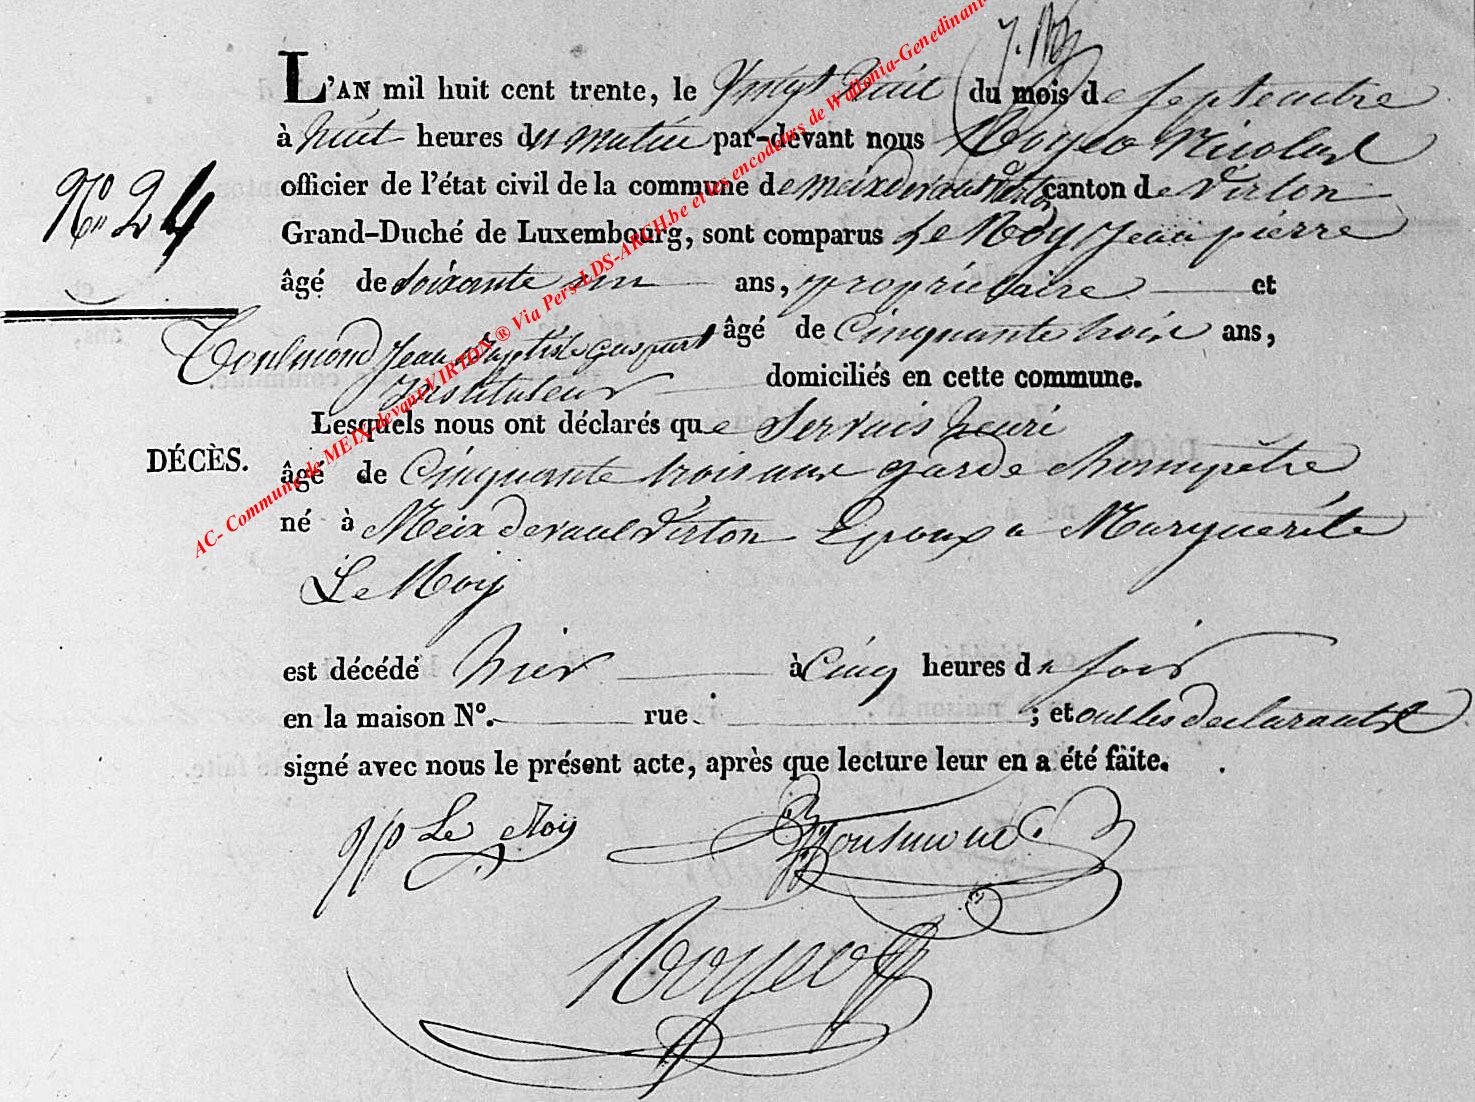 L'AN mil huit cent trente, le Vingt huit du mois de Septembre
à huit heures du matin par-devant nous Royer Nicolas
officier de l'état civil de la commune de meix devant Virton canton de Virton
Nº 24
Grand-Duché de Luxembourg, sont comparus Le Roy Jean pierre
âgé de Soixante un ans, propriétaire et
Toulmond Jean Baptiste gaspart âgé de Cinquante trois ans,
Instituteur domiciliés en cette commune.
Lesquels nous ont déclarés que Servais henri
DÉCÈS.
âgé de Cinquante trois ans garde champêtre
né à Meix devant Virton Epoux a Marguerite
Le Roy
est décédé hier à Cinq heures du soir
en la maison Nº. rue ; et ont les declarants
signé avec nous le présent acte, après que lecture leur en a été faite.
JP Le Roy Toulmond
AC- Commune de MEIX-devant-VIRTON ® Via Pers-LDS-ARCH.be et les encodeurs de Wallonia-Genedinant